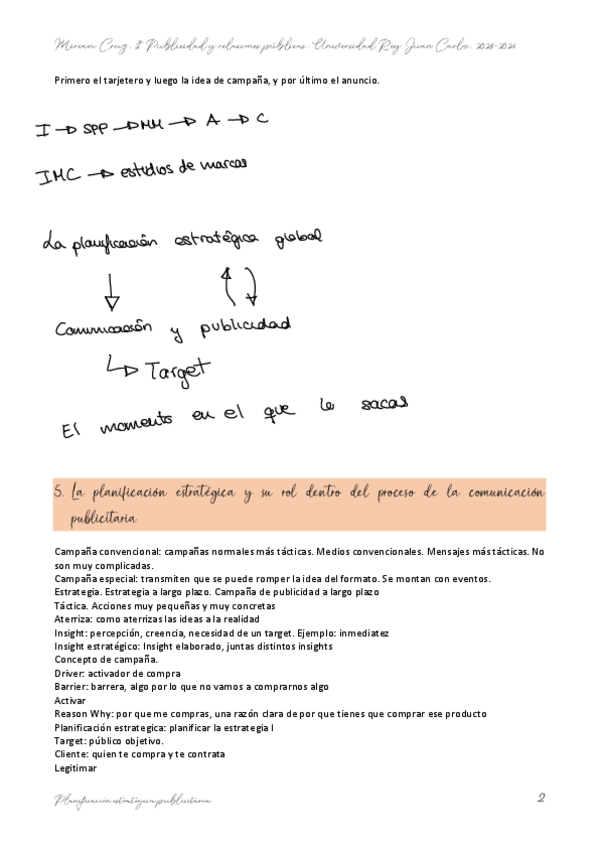 Miriam Cruz. 3º Publicidad y relaciones públicas. Universidad Rey Juan Carlos. 2023-2024
Primero el tarjetero y luego la idea de campaña, y por último el anuncio.
I → SPP → MM → A → C
IMC → estudios de marcas
La planificación estratégica global
Comunicación y publicidad
↳ Target
El momento en el que le sacas
5. La planificación estratégica y su rol dentro del proceso de la comunicación
publicitaria
Campaña convencional: campañas normales más tácticas. Medios convencionales. Mensajes más tácticas. No
son muy complicadas.
Campaña especial: transmiten que se puede romper la idea del formato. Se montan con eventos.
Estrategia. Estrategia a largo plazo. Campaña de publicidad a largo plazo
Táctica. Acciones muy pequeñas y muy concretas
Aterriza: como aterrizas las ideas a la realidad
Insight: percepción, creencia, necesidad de un target. Ejemplo: inmediatez
Insight estratégico: Insight elaborado, juntas distintos insights
Concepto de campaña.
Driver: activador de compra
Barrier: barrera, algo por lo que no vamos a comprarnos algo
Activar
Reason Why: por que me compras, una razón clara de por que tienes que comprar ese producto
Planificación estrategica: planificar la estrategia l
Target: público objetivo.
Cliente: quien te compra y te contrata
Legitimar
Planificación estratégica publicitaria
2